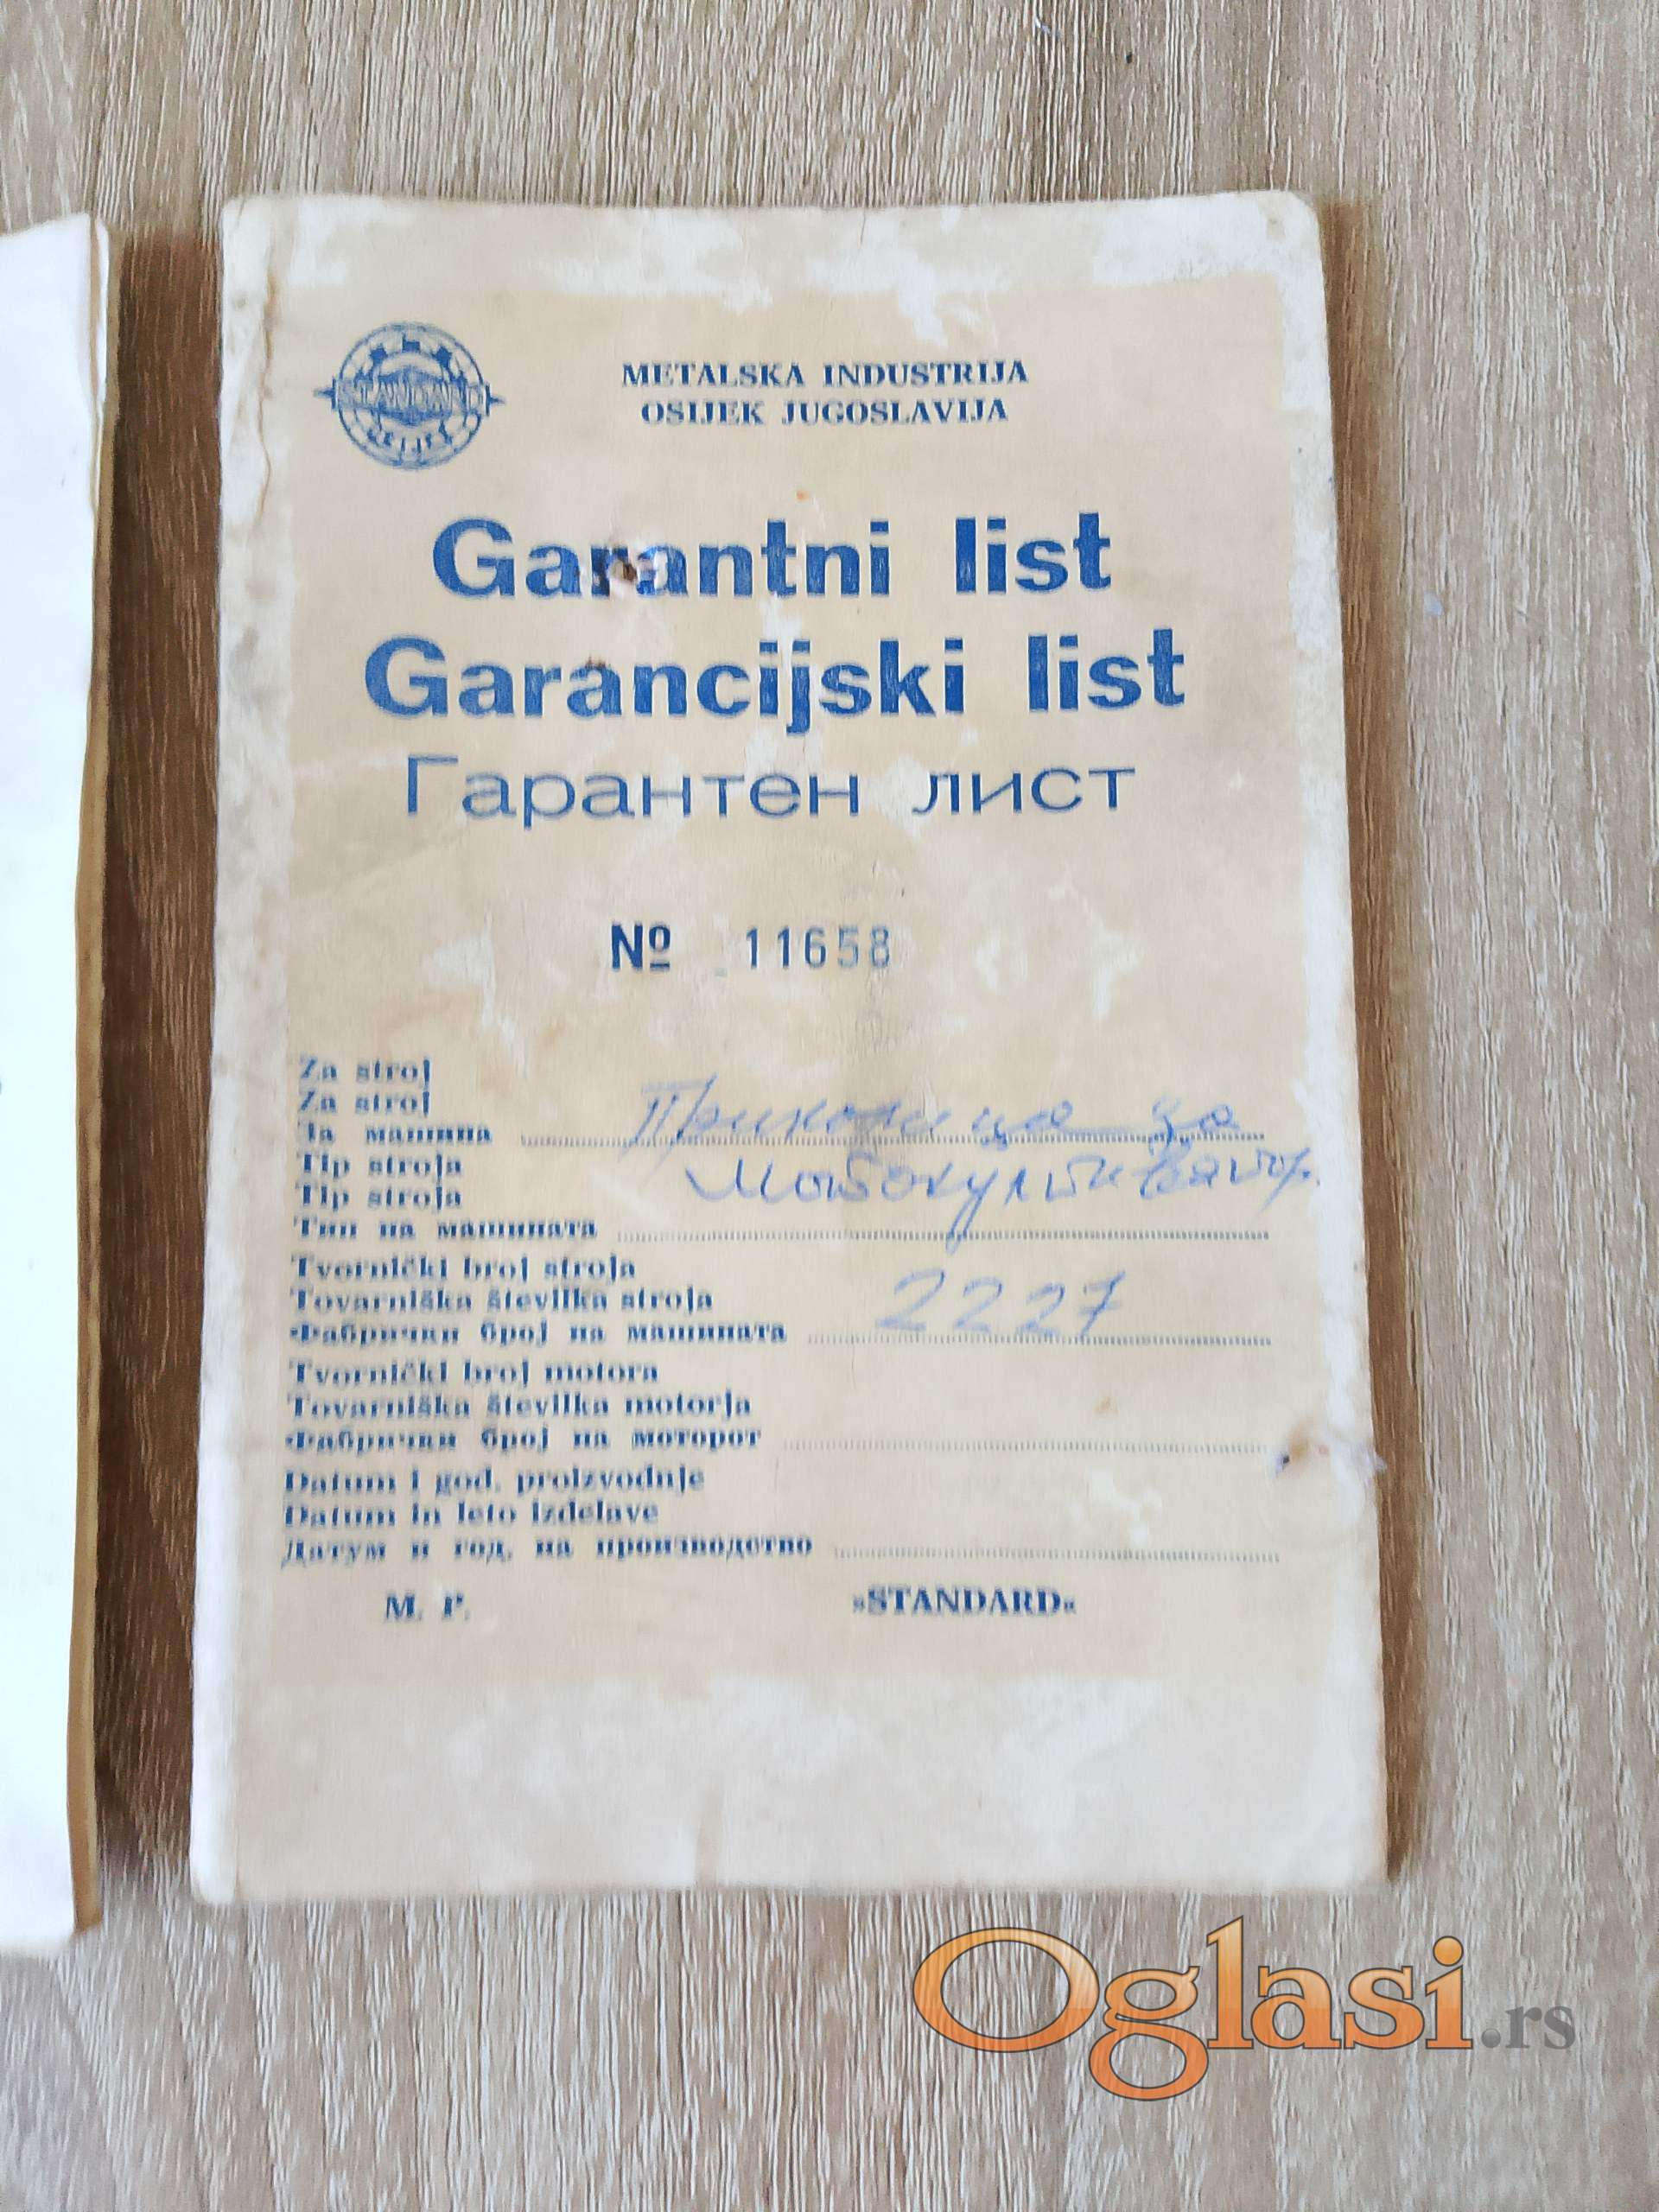 STANDARD
OSIJEK
METALSKA INDUSTRIJA
OSIJEK JUGOSLAVIJA
Garantni list
Garancijski list
Гарантен лист
Nº 11658
Za stroj
Za stroj
За машина Приколица за
Tip stroja Мотокултиватор
Tip stroja
Тип на машината
Tvornički broj stroja
Tovarniška številka stroja 2227
Фабрички број на машината
Tvornički broj motora
Tovarniška številka motorja
Фабрички број на моторот
Datum i god. proizvodnje
Datum in leto izdelave
Датум и год. на производство
M. P. »STANDARD«
Oglasi.rs